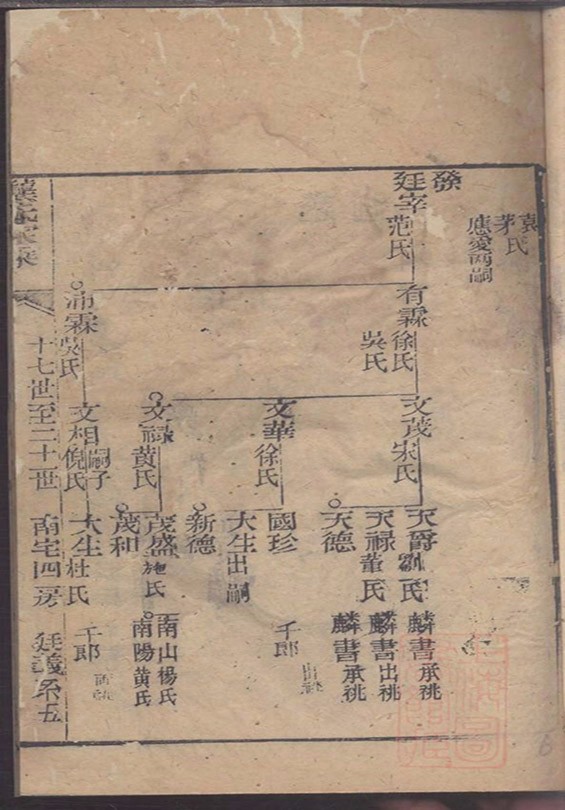 袁氏
茅氏
應愛兩嗣
發
廷宰范氏
有霖徐氏
吳氏
沛霖吳氏
文茂宋氏
文華徐氏
文祿黄氏
文相嗣子倪氏
天爵劉氏
天祿董氏
天德
國珍
大生出嗣
新德
茂盛施氏
茂和
大生杜氏
麟書承祧
麟書出祧
麟書承祧
千郎
南山楊氏
南陽黄氏
千郎
十七世至二十一世
南宅四房
廷義系五